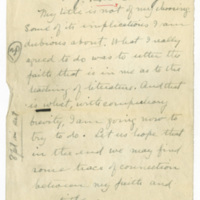 My title is not of my choosing.
Some of its implications I am
dubious about. What I really
agreed to do was to utter the
faith that is in me as to the
teaching of literature. And that
is what, with compulsory
brevity, I am going now to
try to do. Let us hope that
in the end we may find
some trace of connection
between my faith and